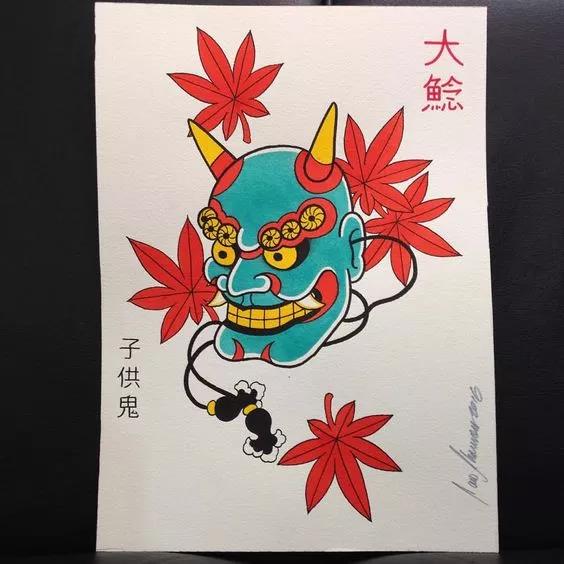 大鯰
子供鬼
2015